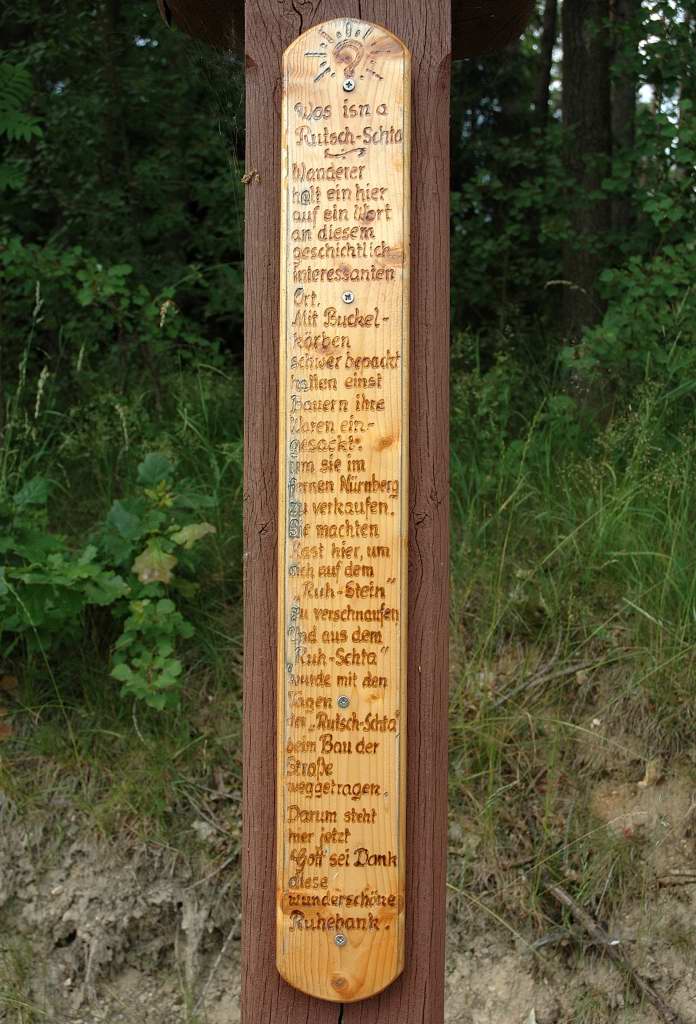 Was isn a
Rutsch-Schta
Wanderer
halt ein hier
auf ein Wort
an diesem
geschichtlich
interessanten
Ort.
Mit Buckel-
körben
schwer bepackt
hatten einst
Bauern ihre
Waren ein-
gesackt.
um sie im
fernen Nürnberg
zu verkaufen.
Sie machten
Rast hier, um
sich auf dem
"Ruh-Stein"
zu verschnaufen
Und aus dem
"Ruh-Schta"
wurde mit den
Tagen
der "Rutsch-Schta"
beim Bau der
Straße
weggetragen.
Darum steht
hier jetzt
"Gott sei Dank
diese
wunderschöne
Ruhebank.